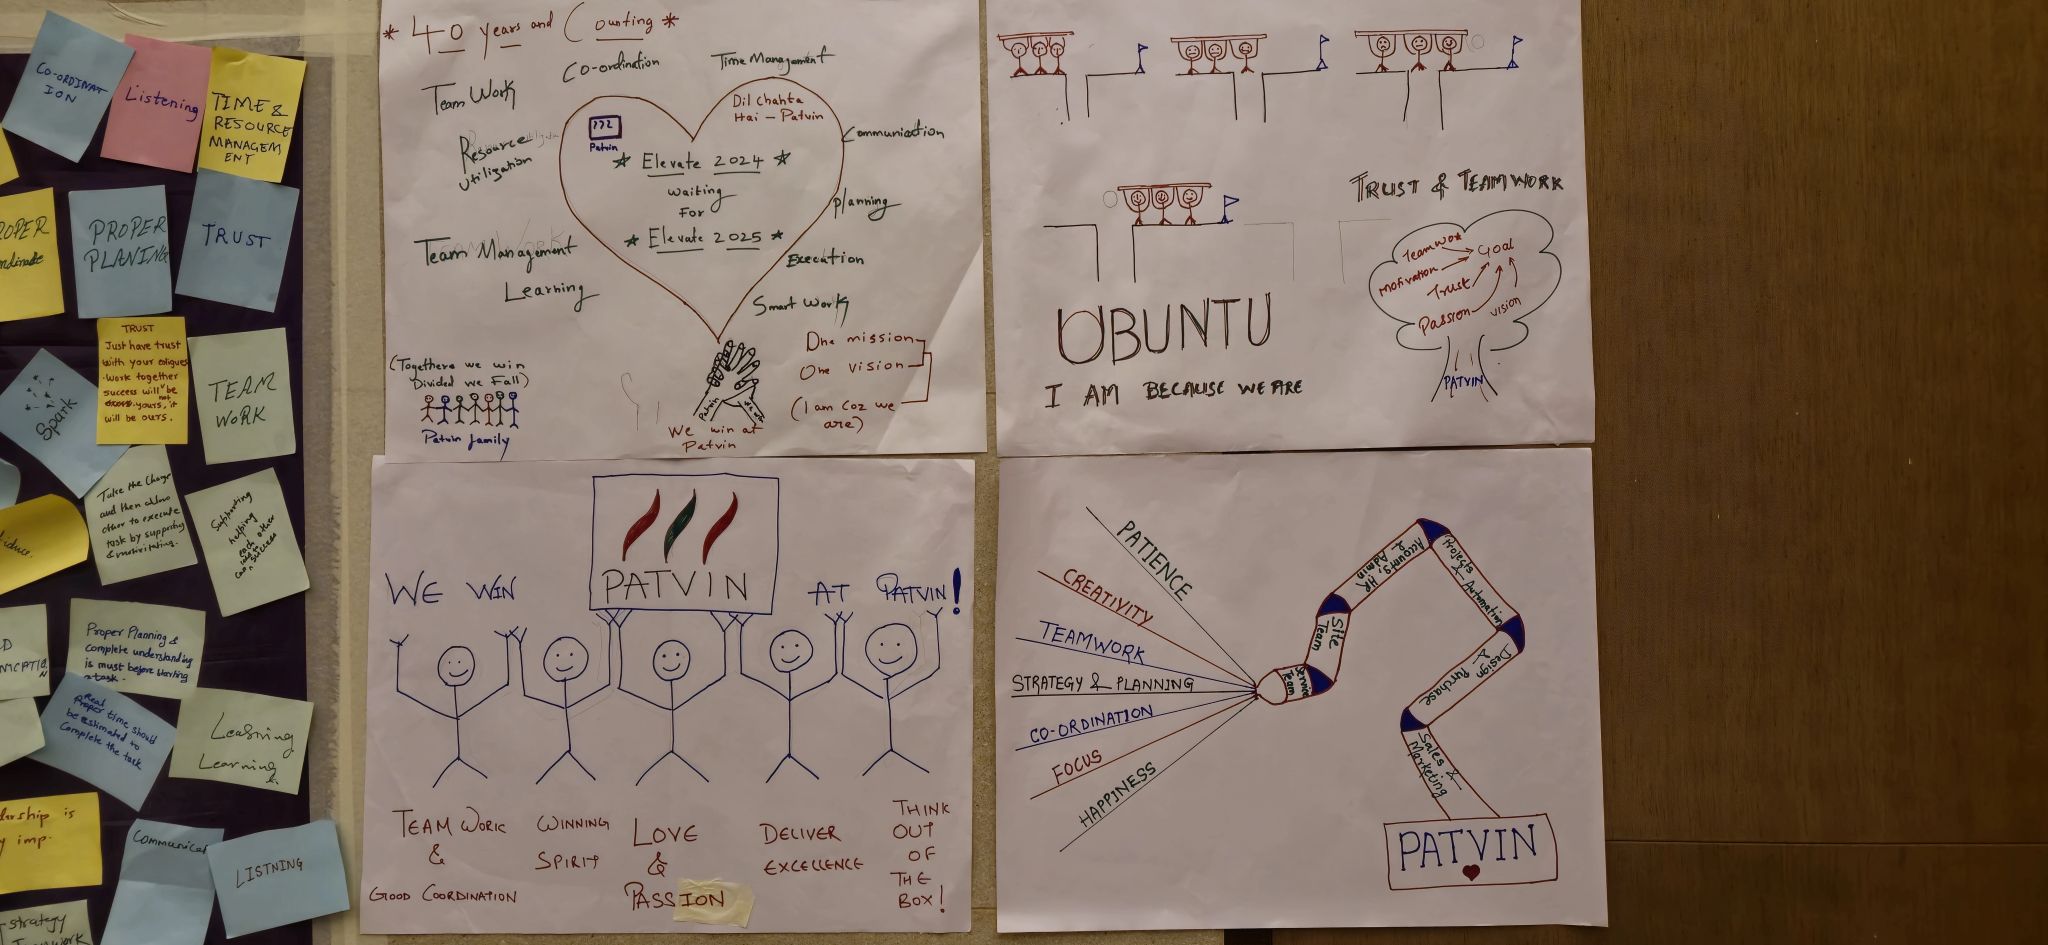 CO-ORDINAT
ION
Listening
TIME &
RESOURCE
MANAGEM
ENT
PROPER
PLANING
TRUST
TRUST
Just have trust
with your
work together
success will not be
yours, it
will be ours.
Spark
TEAM
WORK
Take the Charge
and then allow
other to execute
task by supporting
&
Supporting
helping
each other
success
Proper Planning &
complete understanding
is must before starting
a task.
Real
Proper time should
be estimated to
Complete the task
Learning
Learning
is
imp.
LISTNING
strategy
* 40 years and Counting *
Team Work
Co-ordination
Time Management
Resource
utilization
Team Management
Learning
Communication
Planning
Execution
Smart Work
Dil Chahta
Hai - Patvin
Patvin
* Elevate 2024 *
waiting
For
* Elevate 2025 *
(Togethere we win
Divided we Fall)
Patvin family
Patvin
We win at
Patvin
One mission
One vision
(I am Coz we
are)
TRUST & TEAMWORK
Teamwork
motivation
Trust
Passion
vision
Goal
PATVIN
UBUNTU
I AM BECAUSE WE ARE
WE WIN
PATVIN
AT PATVIN!
TEAM WORK
&
GOOD COORDINATION
WINNING
SPIRIT
LOVE
&
PASSION
DELIVER
EXCELLENCE
THINK
OUT
OF
THE
BOX!
PATIENCE
CREATIVITY
TEAMWORK
STRATEGY & PLANNING
CO-ORDINATION
FOCUS
HAPPINESS
Service
Team
Site
Team
Accounts, HR
& Admin
Projects
& Automation
Design
& Purchase
Sales &
Marketing
PATVIN